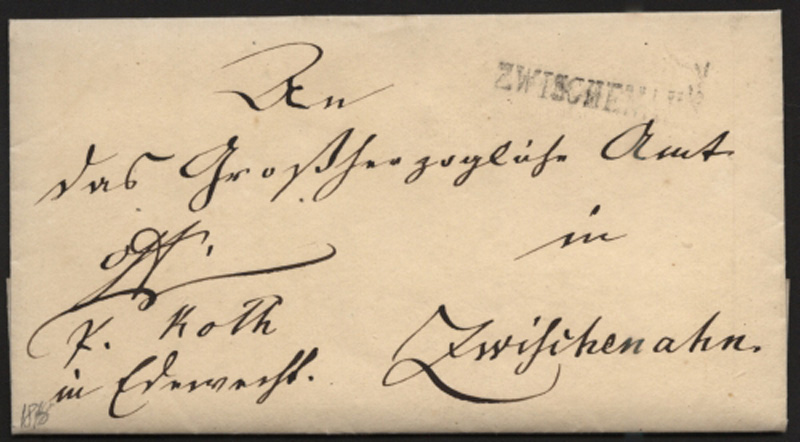 ZWISCHEN
An
das Großherzogliche Amt
in
Zwischenahn.
P. Koth
in Edewecht.